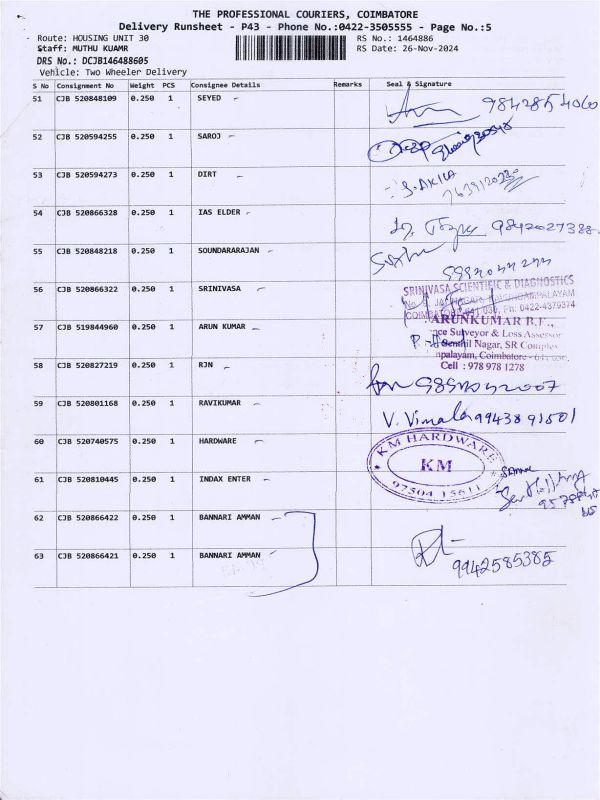 THE PROFESSIONAL COURIERS, COIMBATORE
Delivery Runsheet - P43 - Phone No.:0422-3505555 - Page No.:5
Route: HOUSING UNIT 30 RS No.: 1464886
Staff: MUTHU KUAMR RS Date: 26-Nov-2024
DRS No.: DCJB146488605
Vehicle: Two Wheeler Delivery
S No Consignment No Weight PCS Consignee Details Remarks Seal & Signature
51 CJB 520848109 0.250 1 SEYED
52 CJB 520594255 0.250 1 SAROJ
53 CJB 520594273 0.250 1 DIRT S. AKILA
54 CJB 520866328 0.250 1 IAS ELDER 9842027388
55 CJB 520848218 0.250 1 SOUNDARARAJAN
56 CJB 520866322 0.250 1 SRINIVASA
SRINIVASA SCIENTIFIC & DIAGNOSTICS
Ph: 0422-4379374
57 CJB 519844960 0.250 1 ARUN KUMAR
ARUNKUMAR B.E.,
Surveyor & Loss Assessor
Senthil Nagar, SR Complex
Coimbatore
Cell : 978 978 1278
58 CJB 520827219 0.250 1 RJN
59 CJB 520801168 0.250 1 RAVIKUMAR V. Vimala 9943891501
60 CJB 520740575 0.250 1 HARDWARE
KM HARDWARE
KM
97504 15611
61 CJB 520810445 0.250 1 INDAX ENTER
62 CJB 520866422 0.250 1 BANNARI AMMAN
63 CJB 520866421 0.250 1 BANNARI AMMAN
9942585385